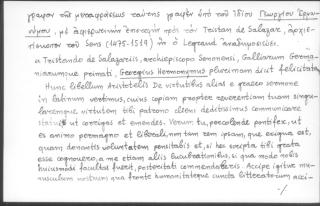 γραφον της μεταφράσεως ταύτης γραφὲν ὑπὸ τοῦ ἰδίου Γεωργίου Ἑρμω-
νύμου, μὲ ἀφιερωτικὴν ἐπιστολὴν πρὸς τὸν Tristan de Salazar, ἀρχιε-
πίσκοπον τοῦ Sens (1475-1519) ἣν ὁ Legrand ἀναδημοσιεύει.
« Tristando de Salazariis, archiepiscopo Senonensi, Galliarum Germa-
niarumque primati, Georgius Hermonymus plurimam dicit felicitatem
Hunc libellum Aristotelis De virtutibus alias e graeco sermone
in latinum vertimus, cuius copiam propter reverentiam tuam singu-
laremque, virtutum tibi patrono alteri deditissimus communicare
statui ut corriges et emendes. Verum tu, praecolende pontifex, ut
es animo permagno et liberali, non tam rem ipsam, quae exigua est,
quam donantis voluntatem pensitabis et, si hec scripta tibi grata
esse cognovero, a me etiam aliis lucubrationibus, si qua modo nobis
huiusmodi facultas fuerit, posteritati commendaberis. Accipe igitur mu-
nusculum nostrum qua fronte humanitateque cuncta litterarum acci-